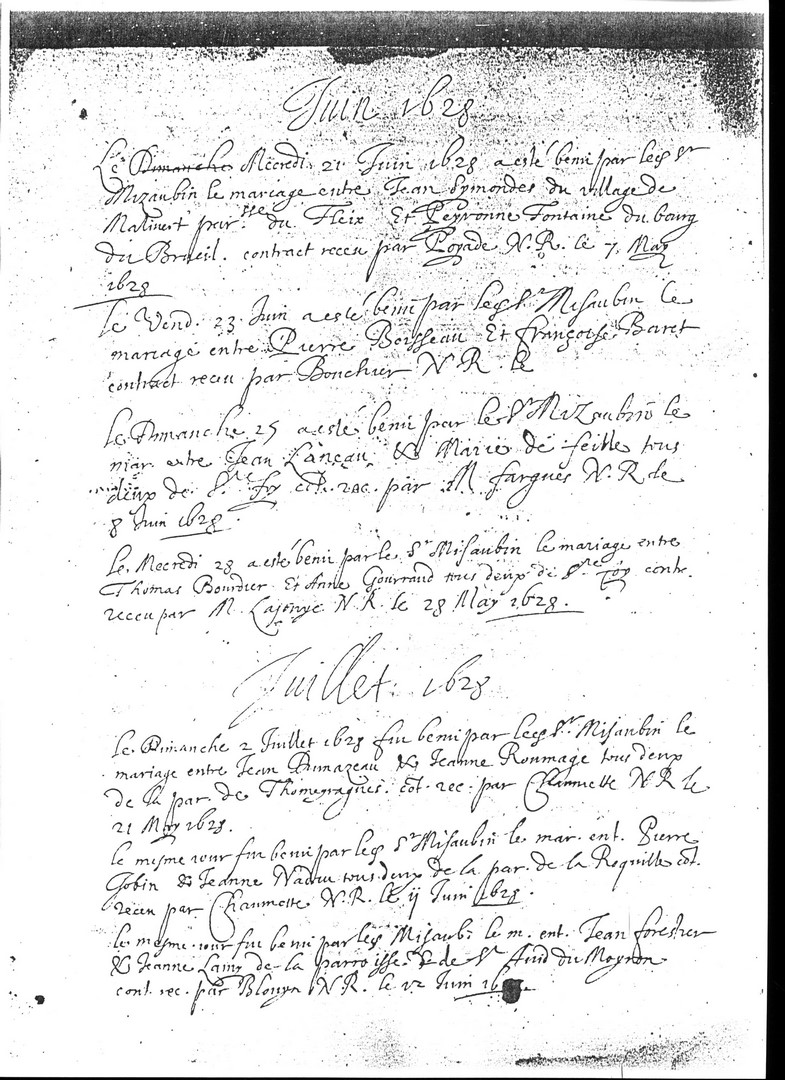 Juin 1628
Le Dimanche Mecredi 21 Juin 1628 a esté beni par led Sr
Mizaubin le mariage entre Jean Symondes du village de
Malivert parsse du Fleix Et Peyronne Fontaine du bourg
du Brueil. contract receu par Poyade N.R. le 7 May
1628
le Vend. 23 Juin a esté beni par led Sr Misaubin le
mariage entre Pierre Boisseau Et Françoise Baret
contract receu par Bouchier N.R. le
le Dimanche 25 a esté beni par le Sr Mizaubin le
mar. entre Jean Laneau & Marie de feille tous
deux de Ste Foy cot. rec. par M fargues N.R le
8 Juin 1628.
le Mecredi 28 a esté beni par le Sr Misaubin le mariage entre
Thomas Bourdier Et Anne Gourraud tous deux de Ste Foy contr.
receu par M. Lajonye N.R. le 28 May 1628.
Juillet. 1628
le Dimanche 2 Juillet 1628 fut beni par led Sr Misaubin le
mariage entre Jean Dumazeau & Jeanne Roumage tous deux
de la par. de Thomeyragues. cot. rec. par Chaumette N R le
21 May 1628.
le mesme jour fut beni par led Sr Misaubin le mar. ent. Pierre
Gobin & Jeanne Nadau tous deux de la par. de la Roquille cot.
receu par Chaumette N.R. le 11 Juin 1628.
le mesme jour fut beni par led Misaubi le m. ent. Jean forestier
& Jeanne Lamy de la parroisse de St Avid du Moyron
cont. rec. par Blouyn N R. le 12 Juin 16